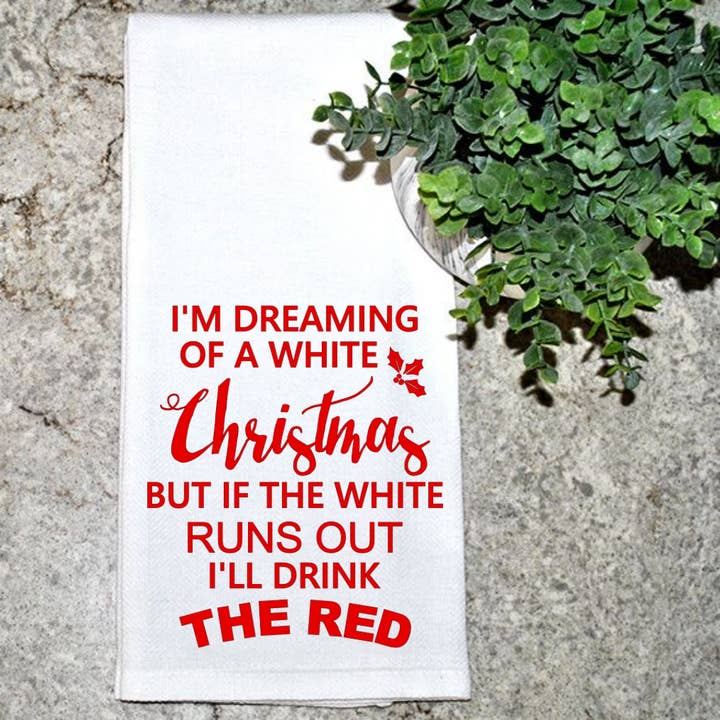 I'M DREAMING
OF A WHITE
Christmas
BUT IF THE WHITE
RUNS OUT
I'LL DRINK
THE RED